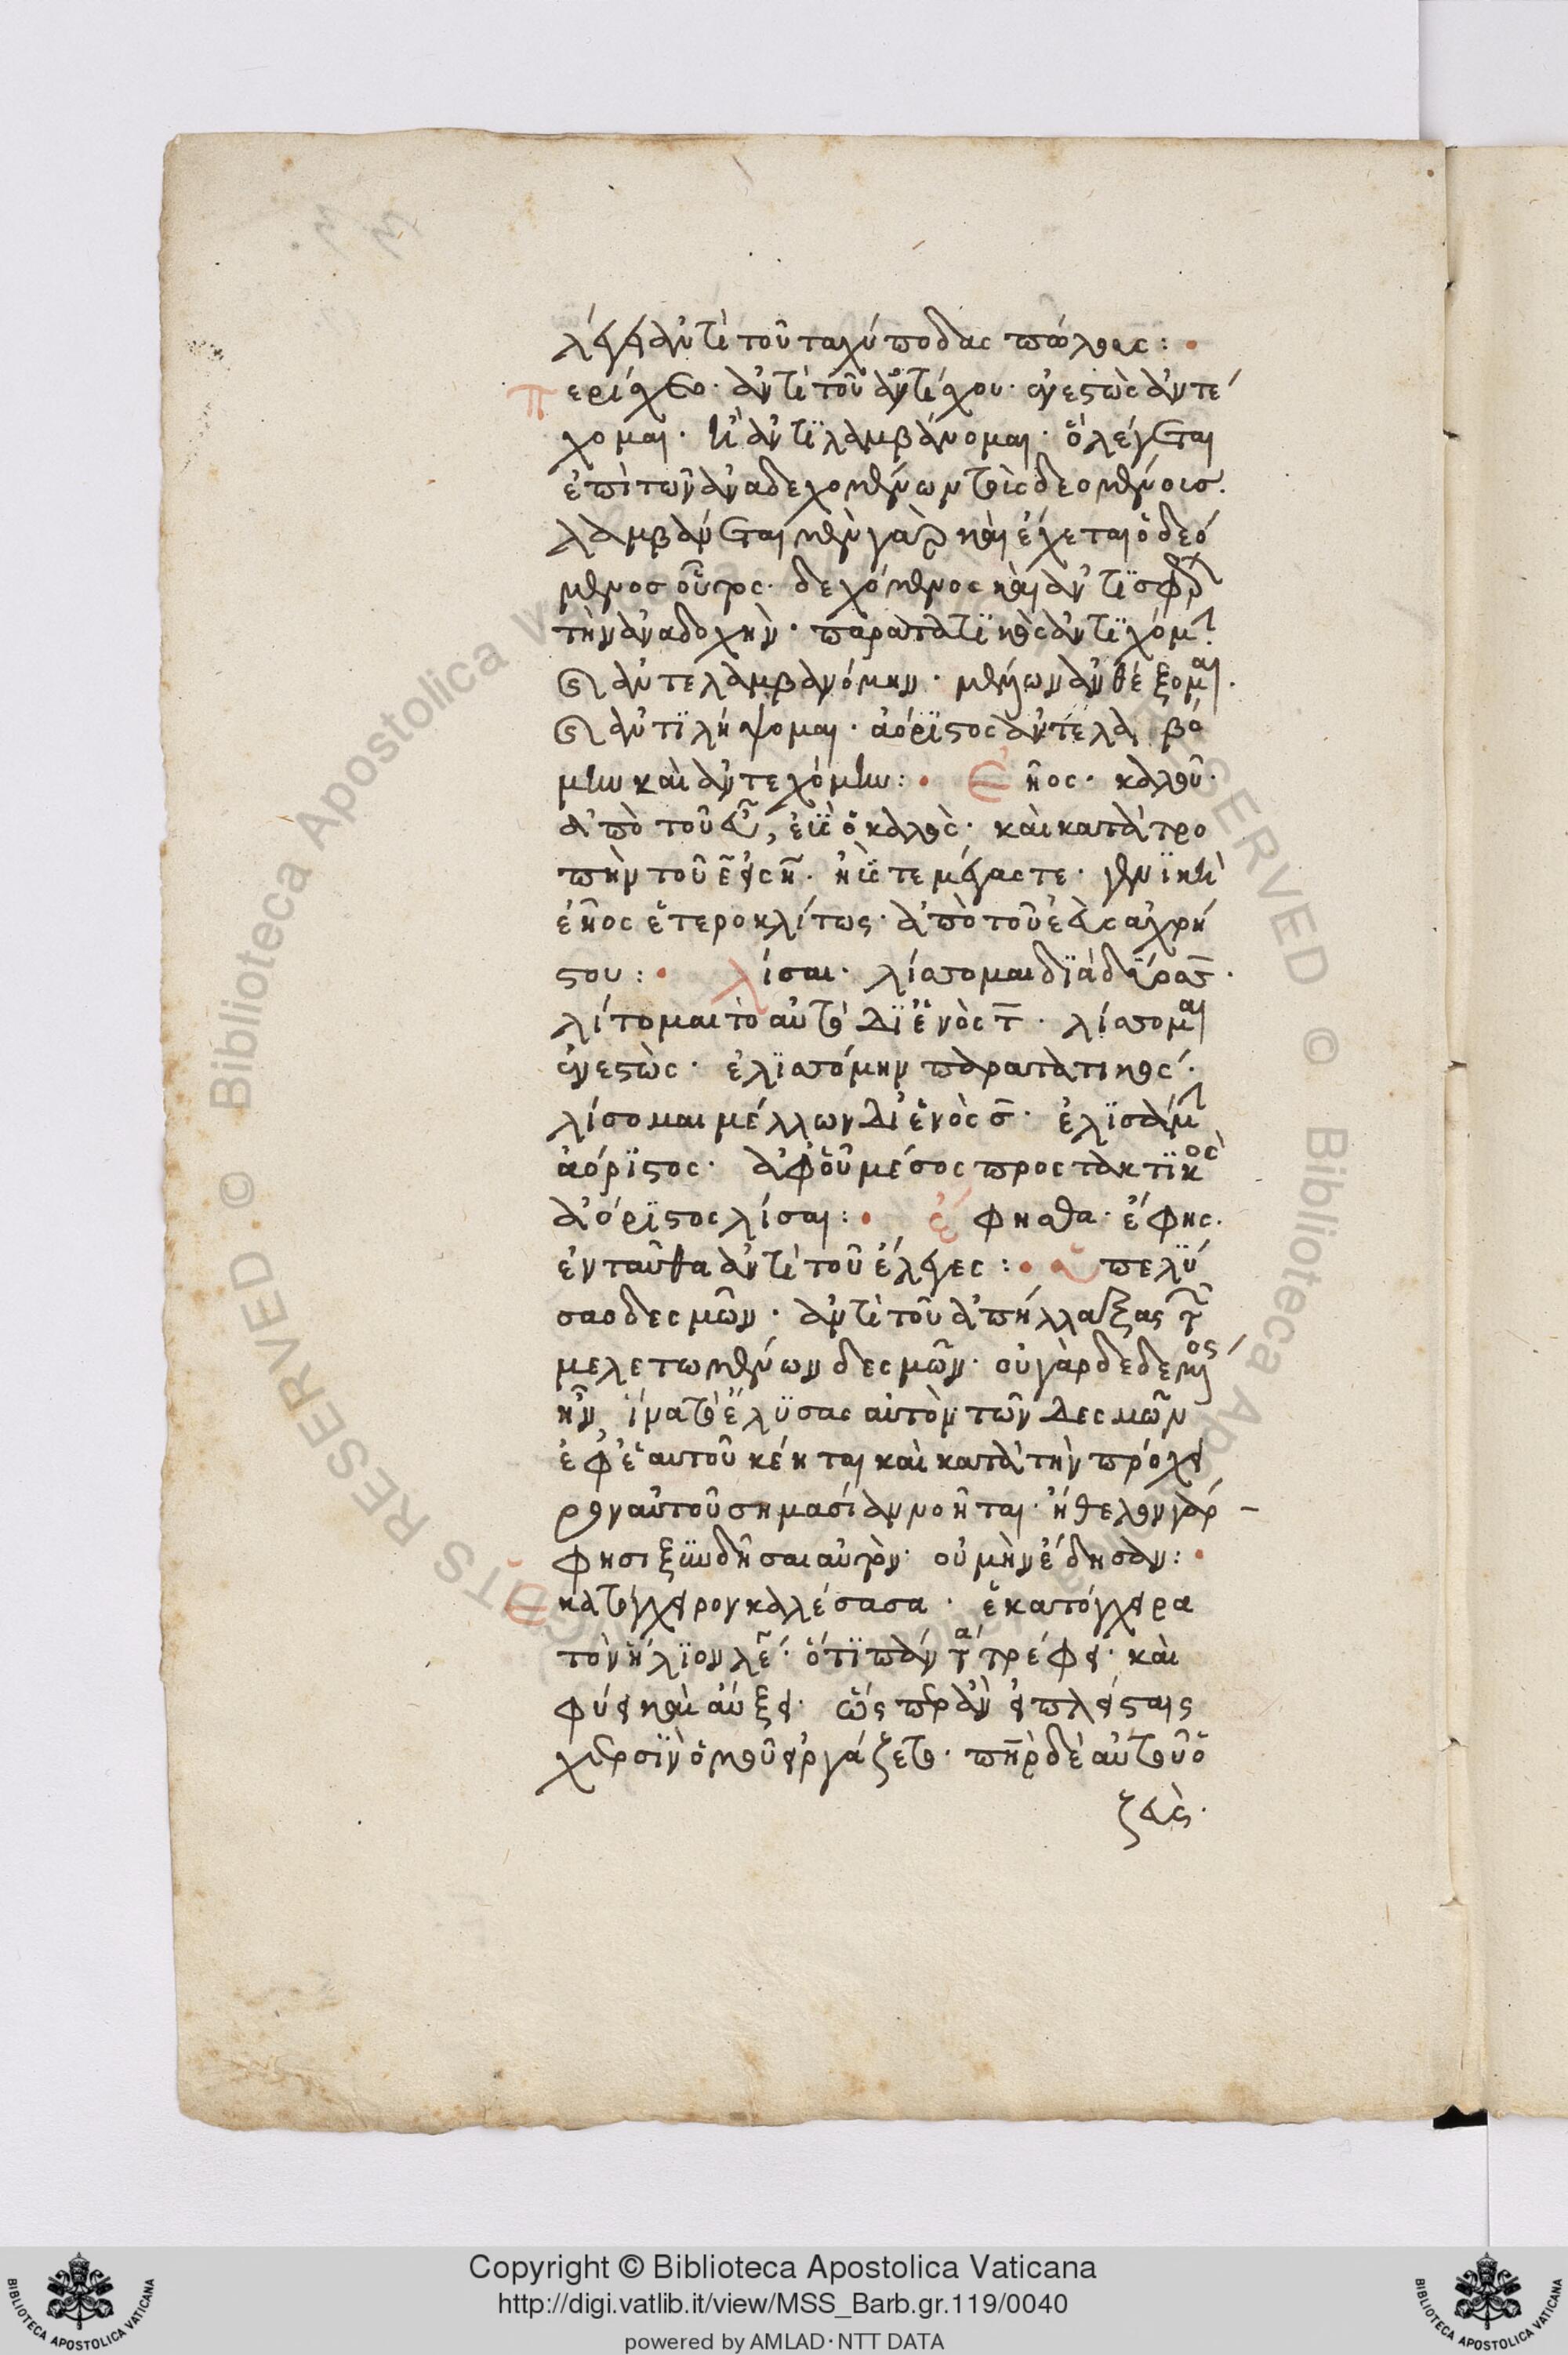 λέγει ἀντὶ τοῦ ταχύποδας πώλους:
περιέχεο· ἀντὶ τοῦ ἀντιέχου· ἐνεστὼς ἀντέ
χομαι· καὶ ἀντϊλαμβάνομαι· ὃ λέγεται
ἐπὶ τῶν ἀναδεχομένων τοὺς δεομένους.
λαμβάνεται μὲν γὰρ καὶ ἔχεται ὁ δεό
μενος οὗτος· δεχόμενος καὶ ἀντϊσφρ
τὴν ἀναδοχήν· παρατατϊκὸς ἀντϊχόμ
καὶ ἀντελαμβανόμην· μέλλων ἀνθέξομαι.
καὶ ἀντϊλήψομαι· ἀόρϊστος ἀντελαβό
μην καὶ ἀντεχόμην: ἐῆος· καλοῦ·
ἀπὸ τοῦ ἐὺς ὁ καλός· καὶ κατὰ τρο
πὴν τοῦ ε εἰς η· ἠΰς τε μέγας τε· γενϊκὴ
ἐῆος ἑτεροκλίτως· ἀπὸ τοῦ ἐεὺς ἀχρή
στου: λίσαι· λίσσομαι δϊὰ δύο σσ·
λίτομαι τὸ αὐτὸ δϊ' ἑνὸς τ· λίσσομαι
ἐνεστώς· ἐλϊσσόμην παρατατικός·
λίσομαι μέλλων δι' ἑνὸς σ· ἐλϊσάμ
ἀόρϊστος· ἀφ' οὗ μέσος προστακτϊκὸς
ἀόρϊστος λίσαι: ἔφησθα· ἔφης.
ἐνταῦθα ἀντὶ τοῦ ἔλεγες: ὑπελύ
σαο δεσμῶν· ἀντὶ τοῦ ἀπήλλαξας τῶν
μελετωμένων δεσμῶν· οὐ γὰρ δεδεμένος
ἦν ἵνα τὸ ἔλυσας αὐτὸν τῶν δεσμῶν
ἐφ' ἑαυτοῦ κέηται καὶ κατὰ τὴν πρόχει
ρον αὐτοῦ σημασίαν νοῆται· ἤθελον γάρ
φησι ξυνδῆσαι αὐτόν· οὐ μὴν ἔδησαν:
ἑκατόγχειρον καλέσασα· ἑκατόγχειρα
τὸν ἥλϊον λέγει· ὅτϊ πάντα τρέφει· καὶ
φύει καὶ αὔξει· ὥσπερ ἂν εἰ πλείσταις
χερσὶν ὁμοῦ εἰργάζετο· πατὴρ δὲ αὐτοῦ ὁ
ζεύς·
Copyright © Biblioteca Apostolica Vaticana
http://digi.vatlib.it/view/MSS_Barb.gr.119/0040
powered by AMLAD·NTT DATA